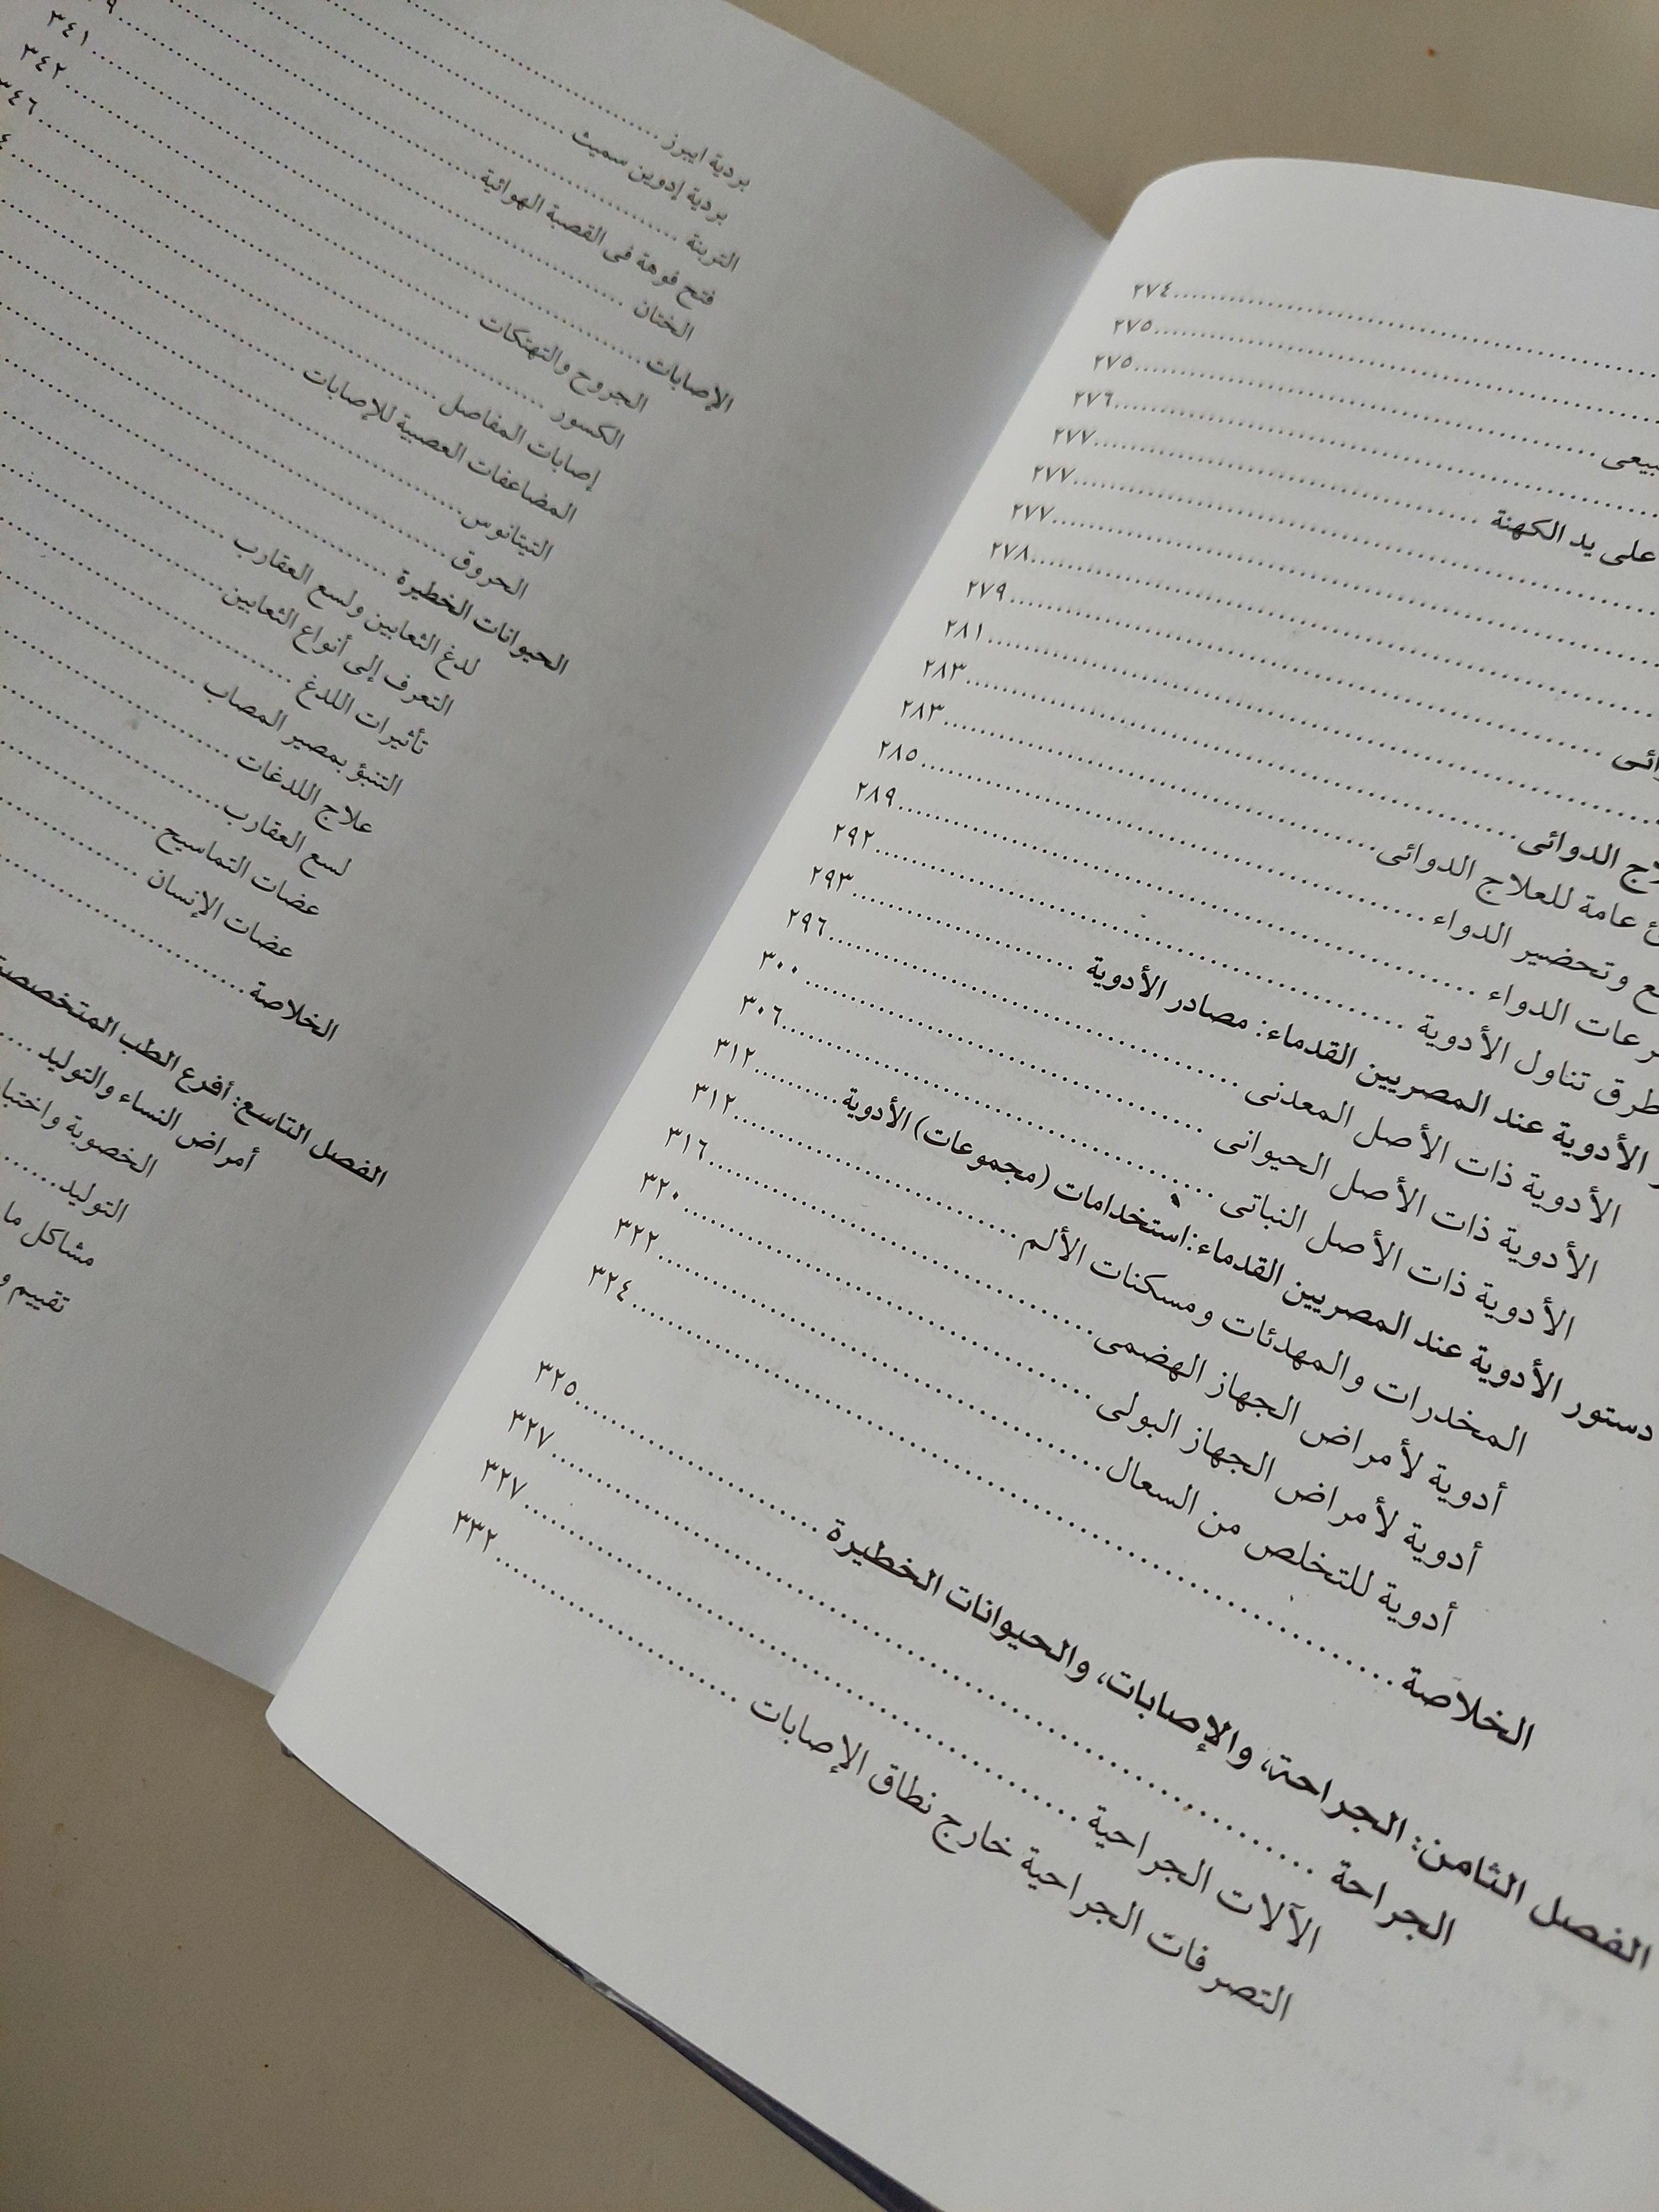 ٢٧٤
٢٧٥
بيعى ٢٧٥
٢٧٦
على يد الكهنة ٢٧٧
٢٧٧
٢٧٧
٢٧٨
٢٧٩
٢٨١
الدوائى ٢٨٣
عامة للعلاج الدوائى ٢٨٣
وتحضير الدواء ٢٨٥
الدواء ٢٨٩
طرق تناول الأدوية ٢٩٢
الأدوية عند المصريين القدماء: مصادر الأدوية ٢٩٣
الأدوية ذات الأصل المعدنى ٢٩٦
الأدوية ذات الأصل الحيوانى ٣٠٠
الأدوية ذات الأصل النباتى ٣٠٦
دستور الأدوية عند المصريين القدماء: استخدامات (مجموعات) الأدوية ٣١٢
المخدرات والمهدئات ومسكنات الألم ٣١٢
أدوية لأمراض الجهاز الهضمى ٣١٦
أدوية لأمراض الجهاز البولى ٣٢٠
أدوية للتخلص من السعال ٣٢٢
الخلاصة ٣٢٤
الفصل الثامن: الجراحة، والإصابات، والحيوانات الخطيرة ٣٢٥
الجراحة ٣٢٧
الآلات الجراحية ٣٢٧
التصرفات الجراحية خارج نطاق الإصابات ٣٣٢
بردية ايبرز
بردية إدوين سميث
التربنة
فتح فوهة فى القصبة الهوائية
الختان ٣٤١
الإصابات ٣٤٢
الجروح والتهتكات ٣٤٦
الكسور
إصابات المفاصل
المضاعفات العصبية للإصابات
التيتانوس
الحروق
الحيوانات الخطيرة
لدغ الثعابين ولسع العقارب
التعرف إلى أنواع الثعابين
تأثيرات اللدغ
التنبؤ بمصير المصاب
علاج اللدغات
لسع العقارب
عضات التماسيح
عضات الإنسان
الخلاصة
الفصل التاسع: أفرع الطب المتخصصة
أمراض النساء والتوليد
الخصوبة
التوليد
مشاكل
تقييم